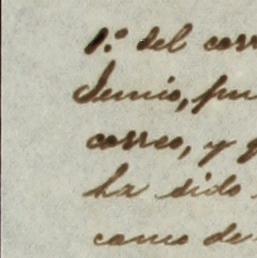 1.º del corr
Junio, pu
correo, y q
ha sido
como de